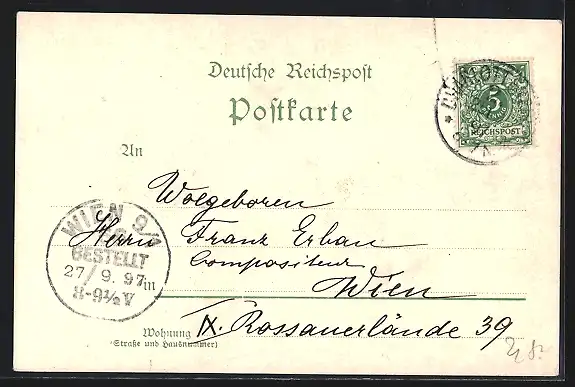 Deutsche Reichspost
Postkarte
5
REICHSPOST
An
Wolgeboren
Herrn Franz Erban
Compositeur
Wien
WIEN 9/1
BESTELLT
27/9.97
8-9½V
Wohnung IX. Rossauerlände 39
(Straße und Hausnummer)